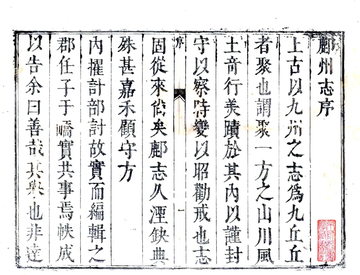 鄜州志序
上古以九州之志為九丘丘
者聚也謂聚一方之山川風
土奇行美蹟於其內以謹封
守以察時變以昭勸戒也志
序
一
固從來尚矣鄜志久湮缺典
殊甚嘉禾顧守方
內擢計部討故實而編輯之
郡任子于嶠實共事焉帙成
以告余曰善哉其舉也非達